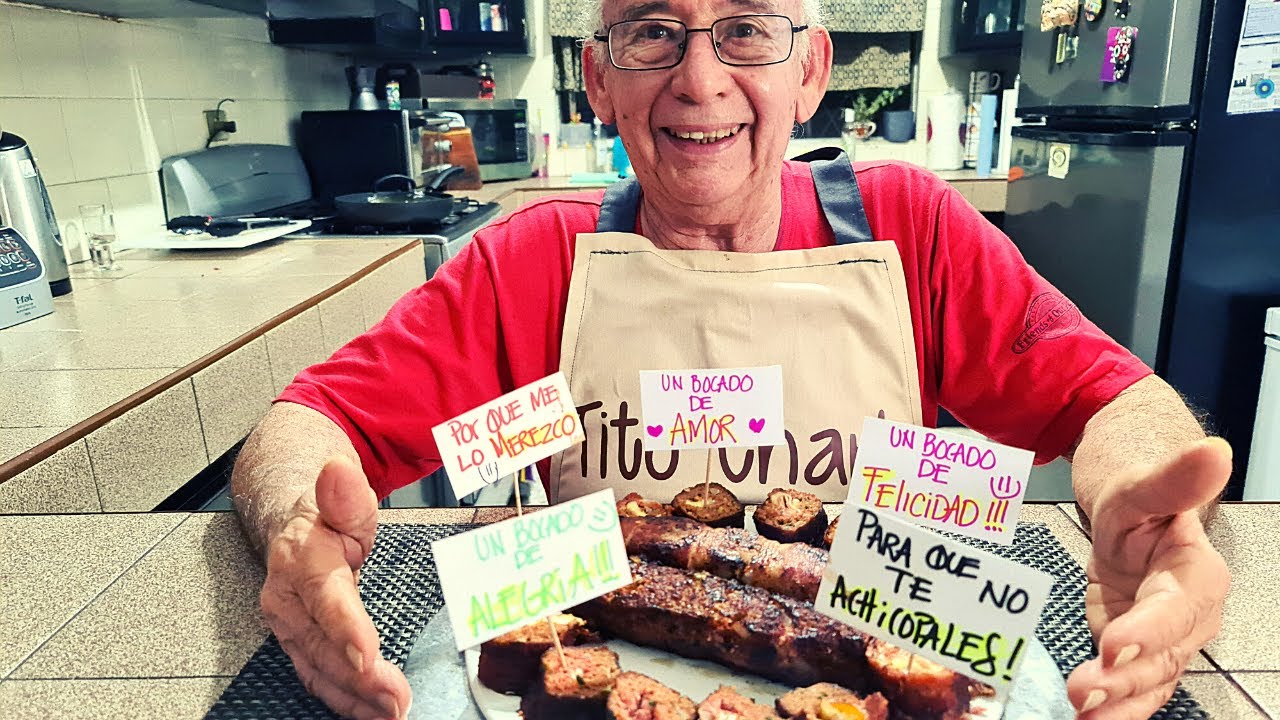 UN BOCADO
DE
AMOR
POR QUE ME
LO MEREZCO
UN BOCADO
DE
FELICIDAD!!!
UN BOCADO
DE
ALEGRÍA!!!
PARA QUE NO
TE
ACHICOPALES!
Tito
T-fal